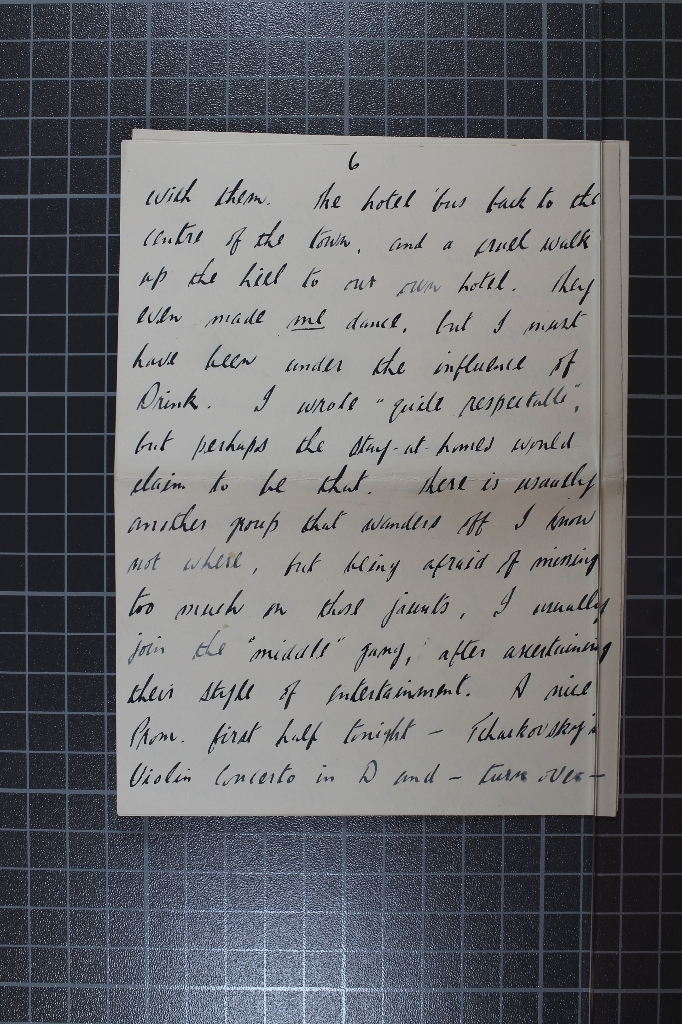 6
with them. The hotel 'bus back to the
centre of the town, and a cruel walk
up the hill to our own hotel. They
even made me dance, but I must
have been under the influence of
Drink. I wrote "quite respectable",
but perhaps the stay-at-homes would
claim to be that. There is usually
another group that wanders off I know
not where, but being afraid of missing
too much on those jaunts, I usually
join the "middle" gang, after ascertaining
their style of entertainment. A nice
Prom. first half tonight - Tchaikovsky's
Violin Concerto in D and - turn over -